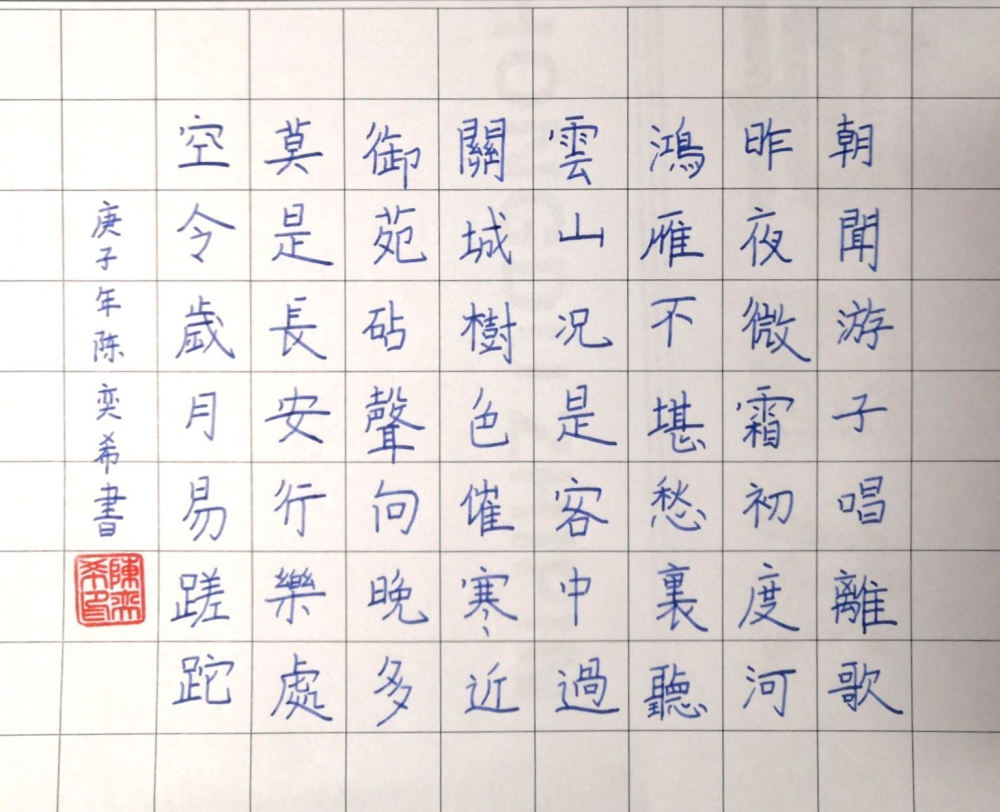 朝聞游子唱離歌
昨夜微霜初度河
鴻雁不堪愁裏聽
雲山况是客中過
關城樹色催寒近
御苑砧聲向晚多
莫是長安行樂處
空令歲月易蹉跎
庚子年陈奕希書
陳奕希印